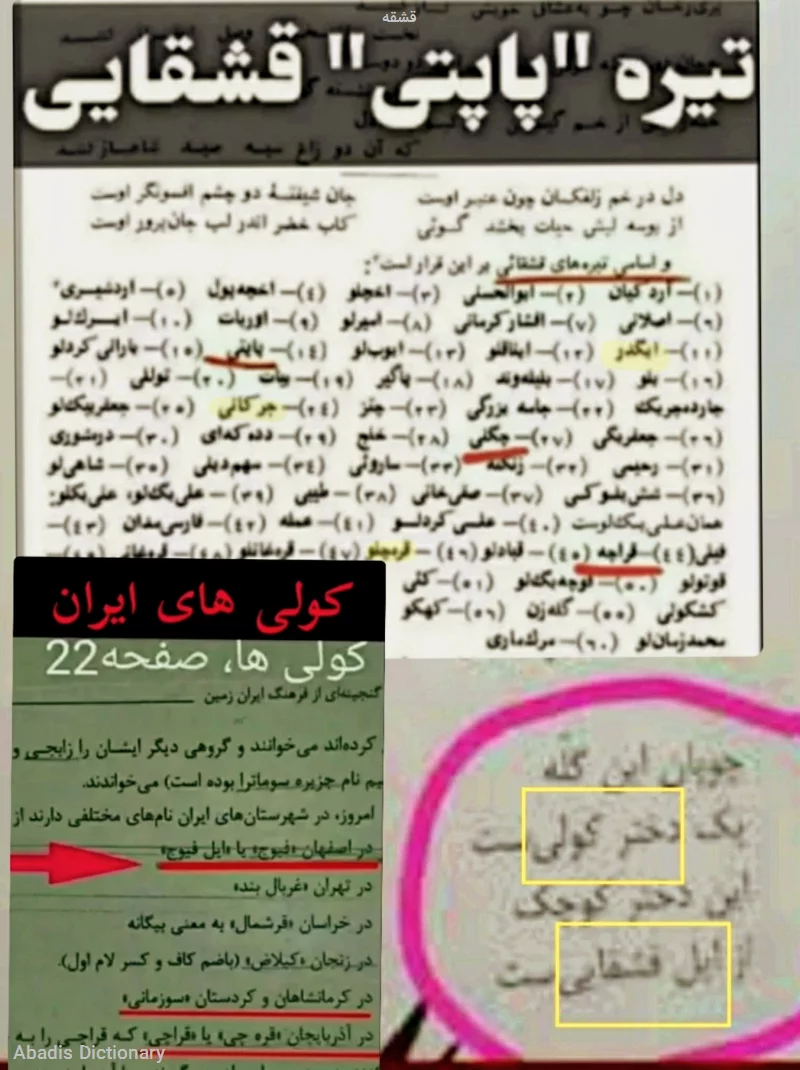 قشقه
تیره "پاپتی" قشقایی
که آن دو زاغ سیه
دل در خم زلفکان چون عنبر اوست جان شیفتهٔ دو چشم افسونگر اوست
از بوسه لبش حیات بخشد گوئی کاب خضر اندر لب جان‌پرور اوست
و اسامی تیره‌های قشقائی بر این قرار است:
(۱)– اردکپان (۲)– ابوالحسنی (۳)– اخچلو (٤)– اخچه‌پول (٥)– اردشیری
(٦)– اصلانی (۷)– افشار کرمانی (۸)– امیرلو (۹)– اوریات (۱۰)– ایرلو
(۱۱)– ایگدر (۱۲)– ایناقلو (۱۳)– ایوب‌لو (۱٤)– پاپتی (۱٥)– بارانی کردلو
(۱٦)– بلو (۱۷)– بلیله‌وند (۱۸)– پاگیر (۱۹)– بیات (۲۰)– توللی (۲۱)–
جارده‌چریک (۲۲)– جامه بزرگی (۲۳)– جنز (۲٤)– جرکانی (۲٥)– جعفربیک‌لو
(۲٦)– جعفربگی (۲۷)– چگنی (۲۸)– خلج (۲۹)– دده‌که‌ای (۳۰)– دره‌شوری
(۳۱)– رحیمی (۳۲)– زنگنه (۳۳)– ساروئی (۳٤)– سهم‌دینلی (۳٥)– شاهی‌لو
(۳٦)– شش‌بلوکی (۳۷)– صفی‌خانی (۳۸)– طیبی (۳۹)– علی‌بگ‌لو، علی‌بکلو:
همان‌علی‌بیک‌لوست (٤۰)– علی کردلو (٤۱)– عمله (٤۲)– فارسی‌مدان (٤۳)–
فیلی (٤٤)– قراچه (٤٥)– قبادلو (٤٦)– قره‌چلو (٤۷)– قره‌قانلو (٤۸)– قره‌قانی
قوتولو (٥۰)– قوجه‌بگ‌لو (٥۱)– کلی
کشکولی (٥٥)– گله‌زن (٥٦)– کهکو
محمدزمان‌لو (٦۰)– مرك‌ماری
کولی های ایران
کولی ها، صفحه22
گنجینه‌ای از فرهنگ ایران زمین
کرده‌اند می‌خوانند و گروهی دیگر ایشان را زابجی و
یم نام جزیره سوماترا بوده است) می‌خواندند.
امروز، در شهرستان‌های ایران نام‌های مختلفی دارند از
در اصفهان «فیوج» یا «ایل فیوج»
در تهران «غربال بند»
در خراسان «قرشمال» به معنی بیگانه
در زنجان «کیلاض» (باضم کاف و کسر لام اول).
در کرمانشاهان و کردستان «سوزمانی»
در آذربایجان «قره چی» یا «قراچی» که قراجی را به
چوپان این گله
یک دختر کولی‌ست
این دختر کوچک
از ایل قشقایی‌ست
Abadis Dictionary